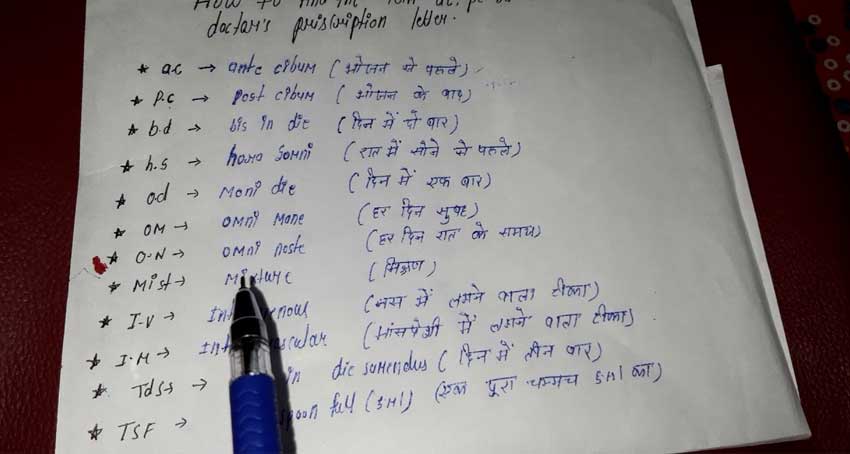 doctor's priscription letter.
★ a.c → ante cibum (भोजन से पहले)
★ P.c → post cibum (भोजन के बाद)
★ b.d → bis in die (दिन में दो बार)
★ h.s → hora somni (रात में सोने से पहले)
★ o.d → Moni die (दिन में एक बार)
★ OM → omni mane (हर दिन सुबह)
★ O.N → omni nocte (हर दिन रात के समय)
★ Mist → Mixture (मिश्रण)
★ I-V → (नस में लगने वाला टीका)
★ I.M → (मांसपेशी में लगने वाला टीका)
★ Tds → in die sumendus (दिन में तीन बार)
★ TSF → full (5ml) (एक पूरा चम्मच 5ml का)